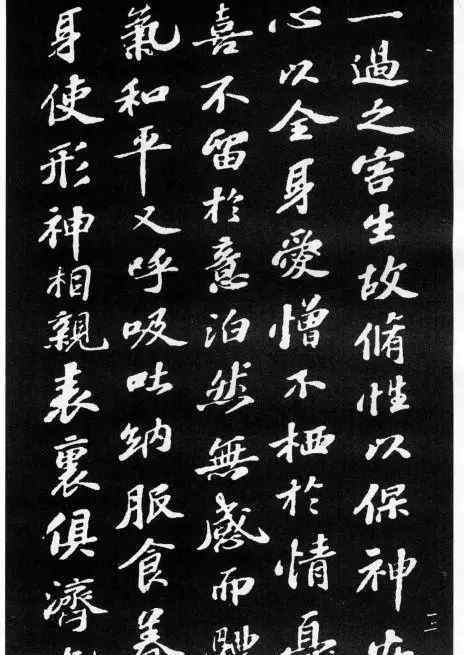 一過之害生故脩性以保神安
心以全身愛憎不栖於情憂
喜不留於意泊然無感而體
氣和平又呼吸吐納服食養
身使形神相親表裏俱濟
二